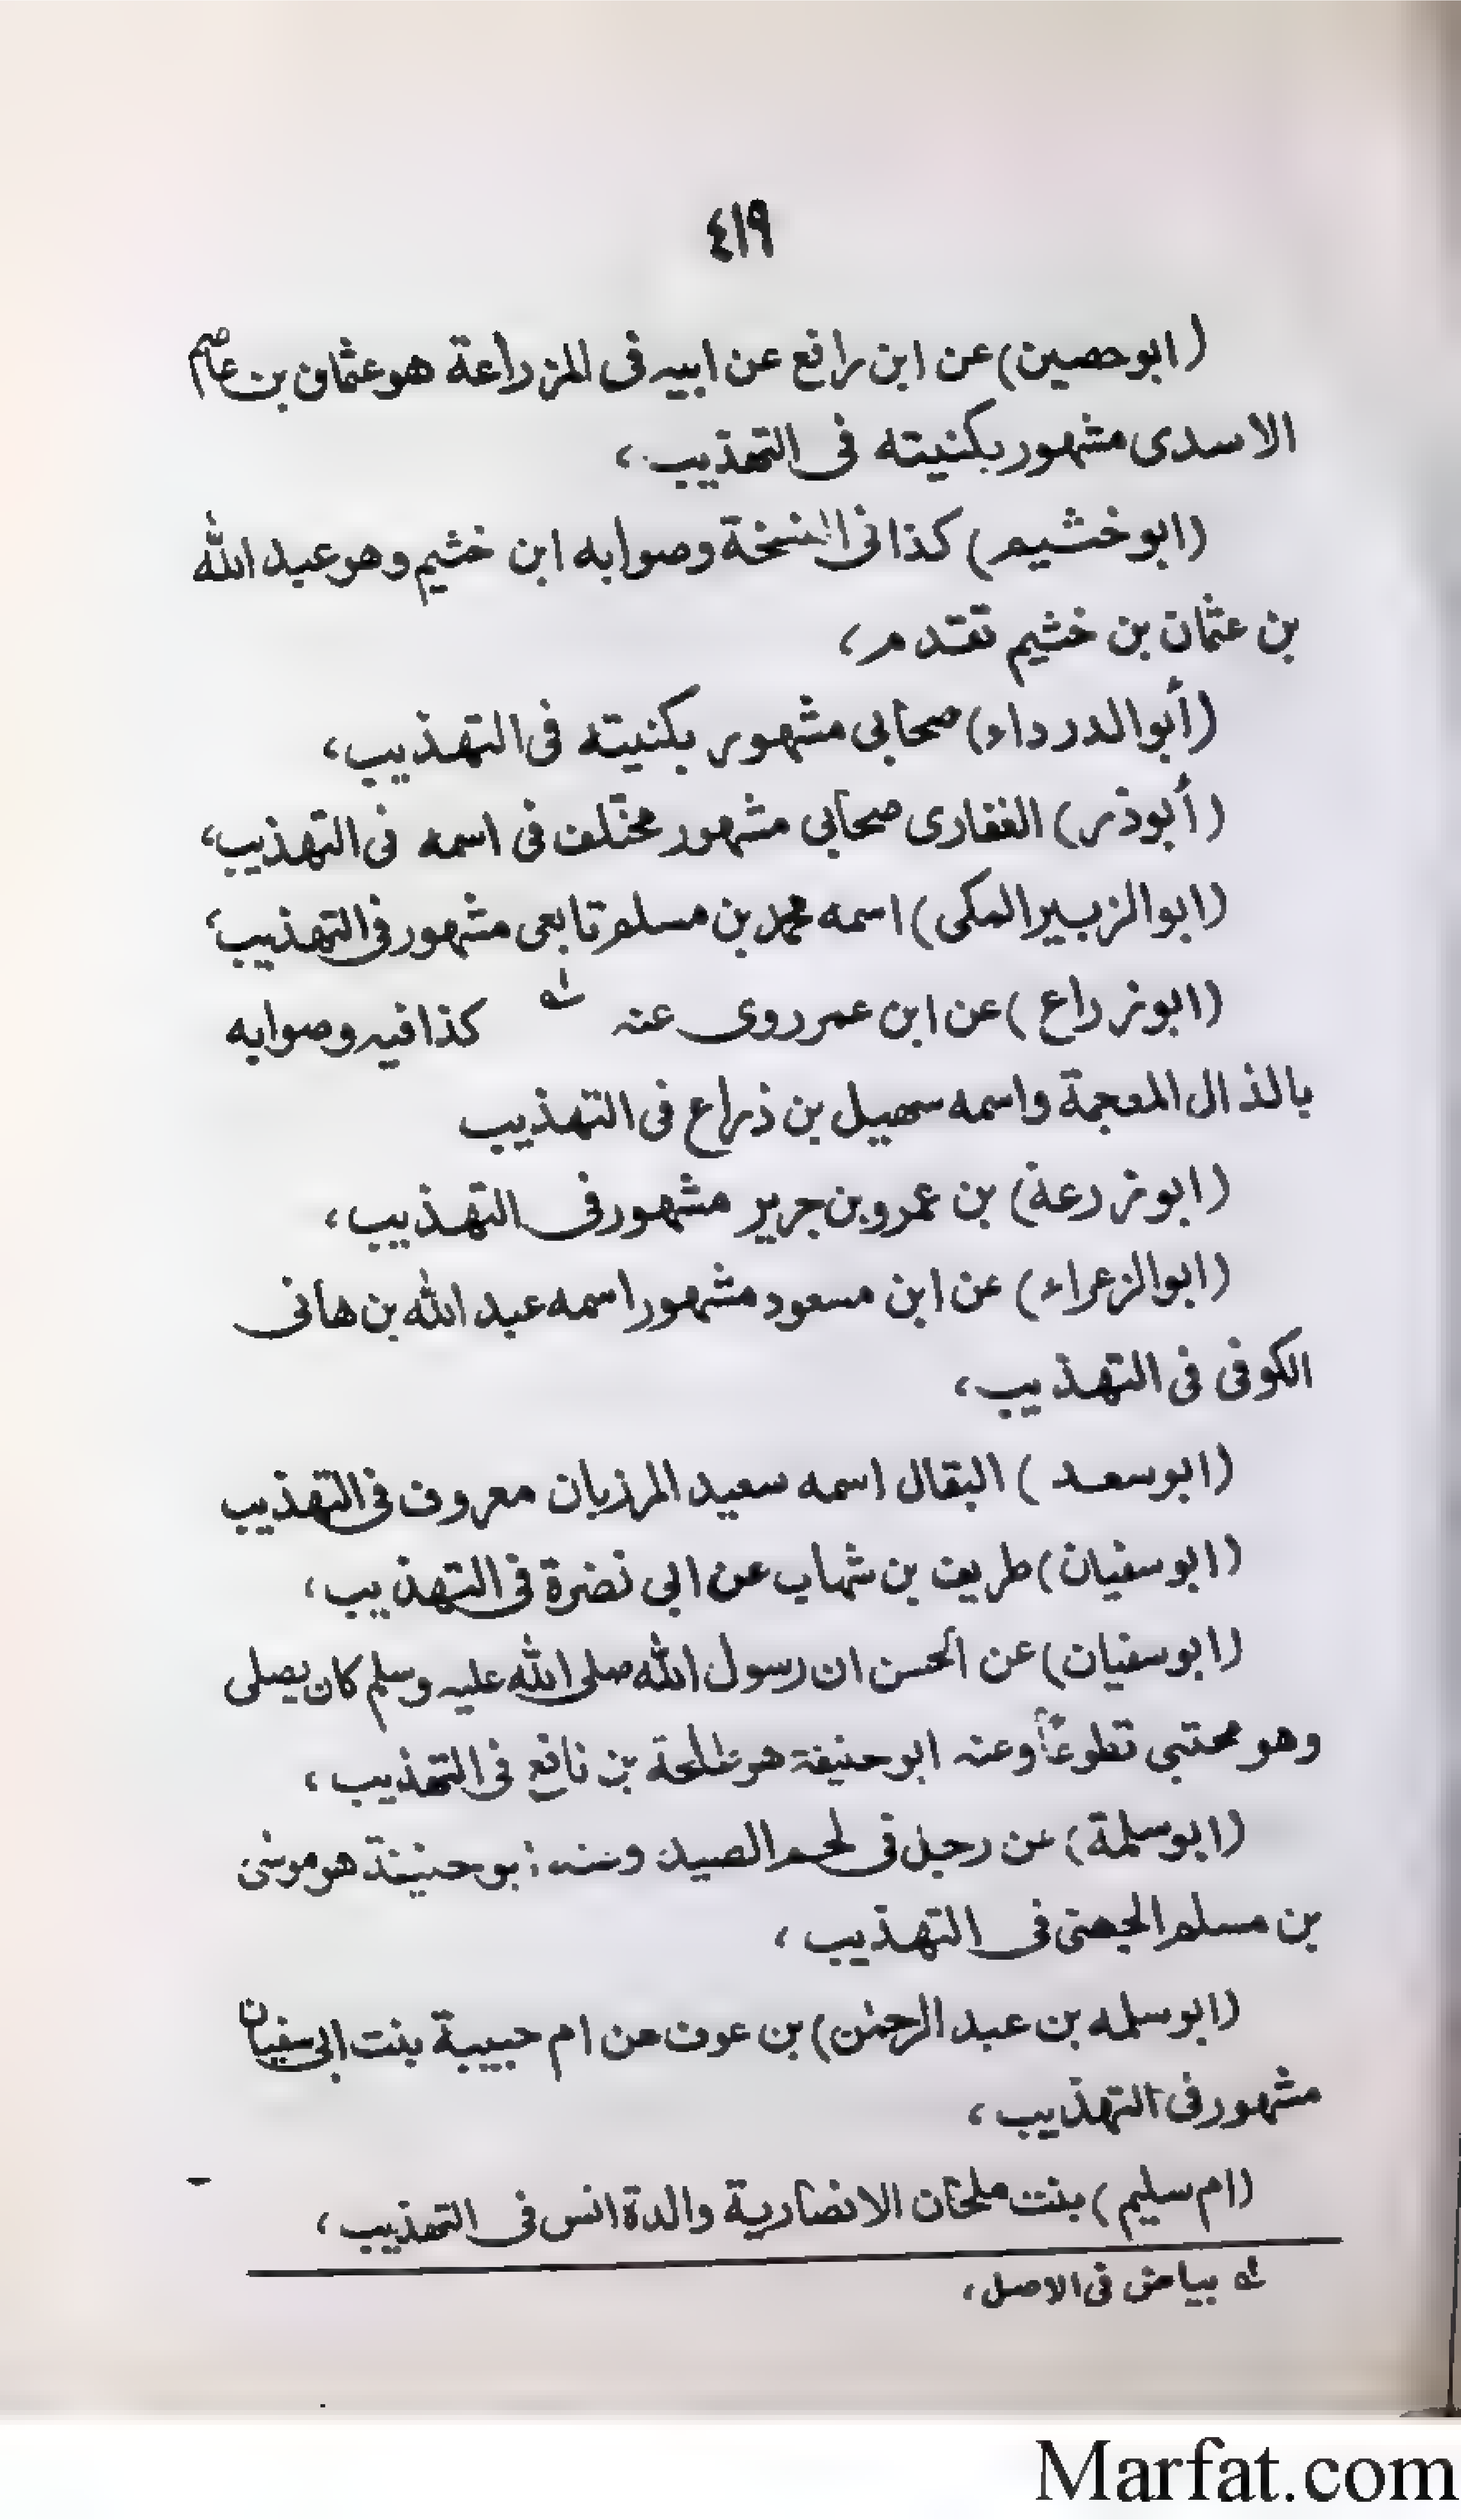 ٤١٩
(ابوحصين) عن ابن رافع عن ابيه فى المزراعة هو عثمان بن عاصم
الاسدى مشهور بكنيته فى التهذيب،
(ابوخشيم) كذا فى النسخة وصوابه ابن خثيم وهو عبد الله
بن عثمان بن خثيم تقدم،
(أبوالدرداء) صحابى مشهور بكنيته فى التهذيب،
(أبوذر) الغفارى صحابى مشهور مختلف فى اسمه فى التهذيب،
(ابوالزبير المكى) اسمه محمد بن مسلم تابعى مشهور فى التهذيب،
(ابوزراع) عن ابن عمر روى عنه كذا فيه وصوابه
بالذال المعجمة واسمه سهيل بن ذراع فى التهذيب
(ابوزرعة) بن عمرو بن جرير مشهور فى التهذيب،
(ابوالزعراء) عن ابن مسعود مشهور اسمه عبد الله بن هانى
الكوفى فى التهذيب،
(ابوسعد) البقال اسمه سعيد المرزبان معروف فى التهذيب
(ابوسفيان) طريف بن شهاب عن ابى نضرة فى التهذيب،
(ابوسفيان) عن الحسن ان رسول الله صلى الله عليه وسلم كان يصلى
وهو محتبى تطوعاً وعنه ابوحنيفة هو طلحة بن نافع فى التهذيب،
(ابوسلمة) عن رجل فى لحم الصيد وعنه ابوحنيفة هو موسى
بن مسلم الجهنى فى التهذيب،
(ابوسلمه بن عبد الرحمٰن) بن عوف عن ام حبيبة بنت ابى سفيان
مشهور فى التهذيب،
(ام سليم) بنت ملحان الانصارية والدة انس فى التهذيب،
بياض فى الاصل،
Marfat.com